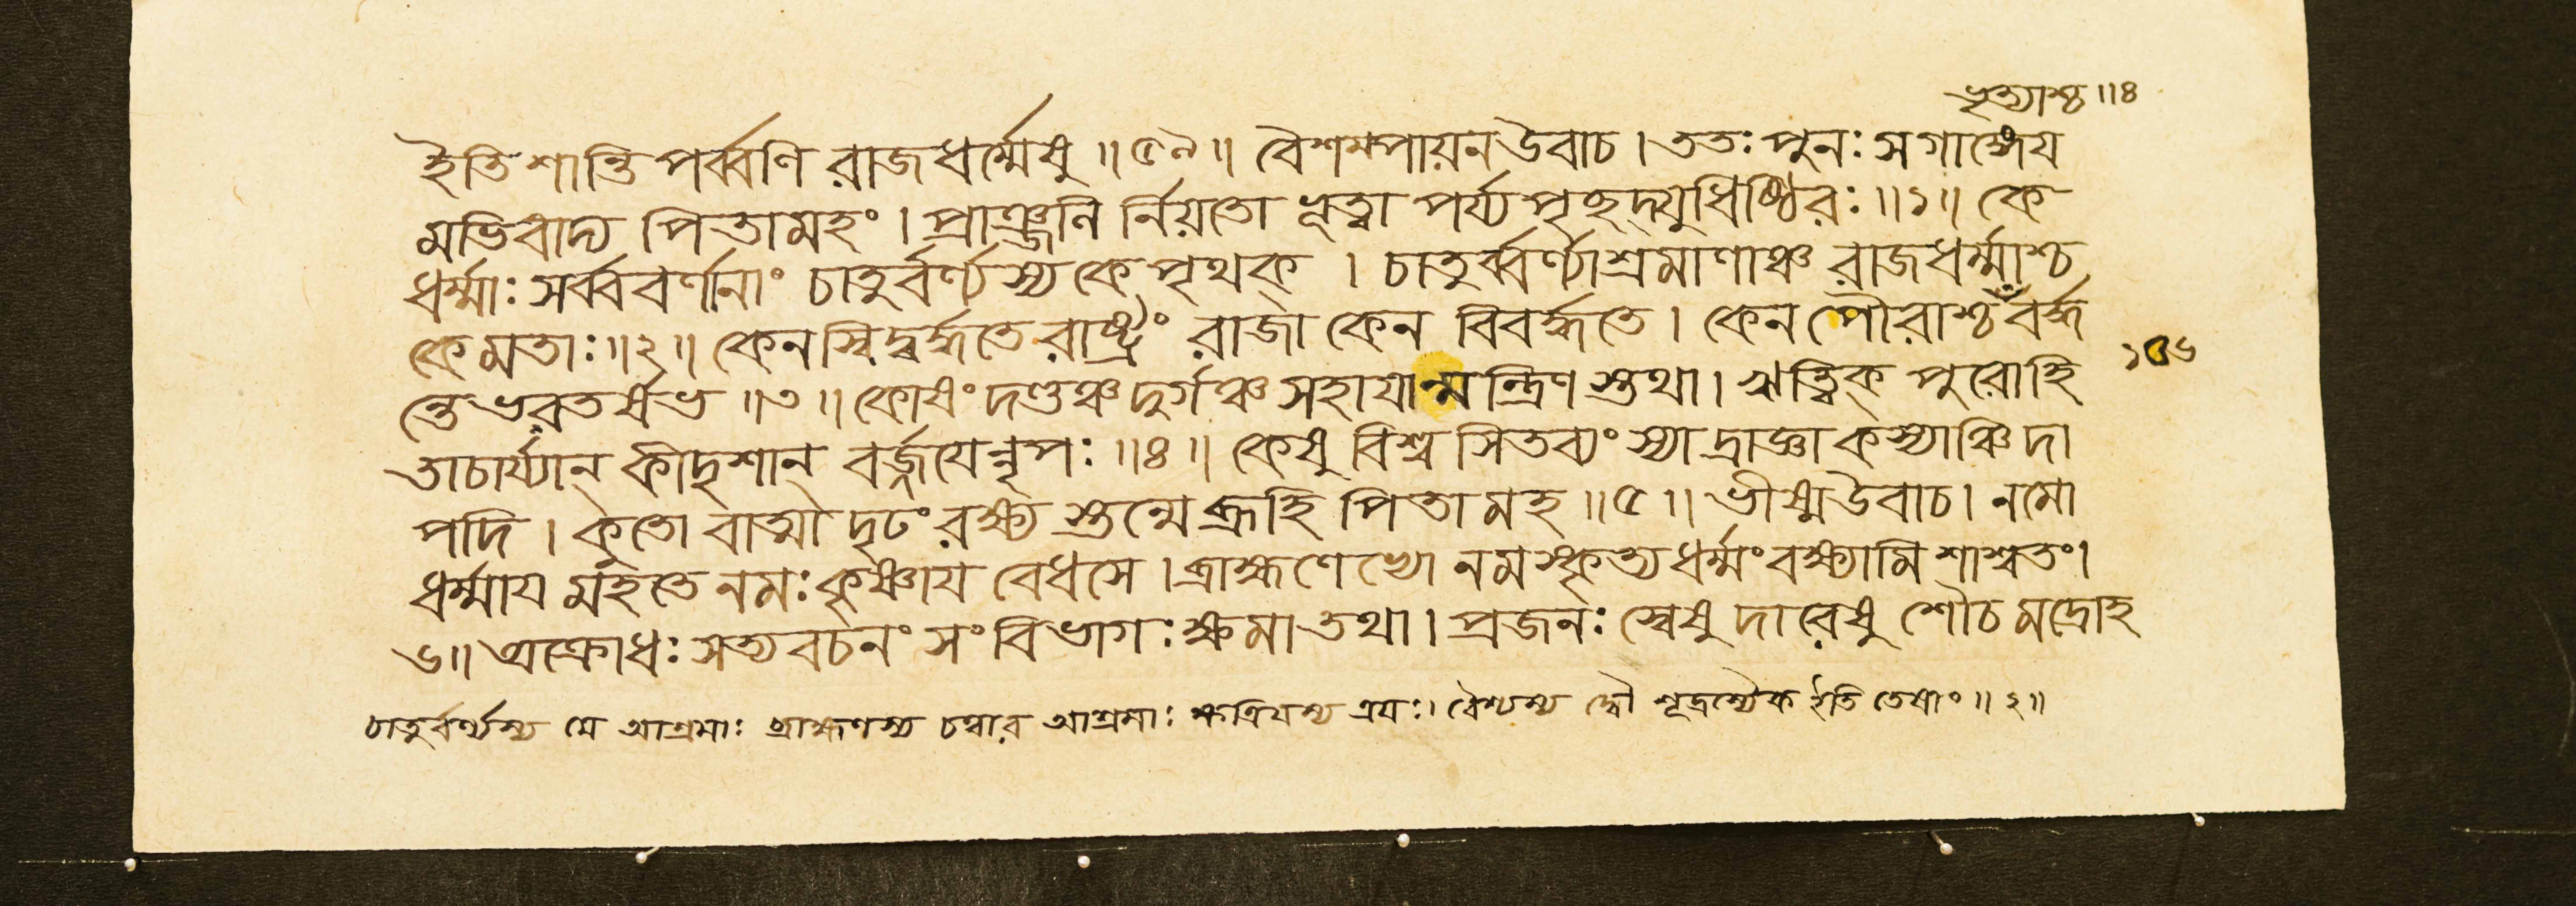 ভৃত্যাশ্চ ॥৪
ইতি শান্তি পর্ব্বণি রাজধর্ম্মেষু ॥৫৯॥ বৈশম্পায়ন উবাচ । ততঃ পুনঃ সগাঙ্গেয
মভিবাদ্য পিতামহং । প্রাঞ্জলি র্নিয়তো ভূত্বা পর্য্যপৃছদ্যুধিষ্ঠিরঃ ॥১॥ কে
ধর্ম্মাঃ সর্ব্ববর্ণানাং চাতুর্বর্ণ্যস্য কে পৃথক্ । চাতুর্ব্বর্ণ্যাশ্রমাণাঞ্চ রাজধর্ম্মাশ্চ
কে মতাঃ ॥২॥ কেনস্বিদ্বর্দ্ধতে রাষ্ট্রং রাজা কেন বিবর্দ্ধতে । কেন পৌরাশ্চ বর্দ্ধ
ন্তে ভরতর্ষভ ॥৩॥ কোষং দণ্ডঞ্চ দুর্গঞ্চ সহাযান্মন্ত্রিণ স্তথা । ঋত্বিক্ পুরোহি
তাচার্য্যান্ কীদৃশান্ বর্জ্জযেন্নৃপঃ ॥৪॥ কেষু বিশ্বসিতব্যং স্যা দ্রাজ্ঞা কস্যাঞ্চিদা
পদি । কুতো বাত্মা দৃঢং রক্ষ্য স্তন্মে ব্রূহি পিতামহ ॥৫॥ ভীষ্ম উবাচ । নমো
ধর্ম্মায মহতে নমঃ কৃষ্ণায বেধসে । ব্রাহ্মণেভ্যো নমস্কৃত্য ধর্ম্মং বক্ষ্যামি শাশ্বতং ।
৬॥ অক্রোধঃ সত্যবচনং সংবিভাগঃ ক্ষমা তথা । প্রজনঃ স্বেষু দারেষু শৌচমদ্রোহ
চাতুর্বর্ণ্যস্য যে আশ্রমাঃ ব্রাহ্মণস্য চত্বার আশ্রমাঃ ক্ষত্রিযস্য ত্রযঃ । বৈশ্যস্য দ্বৌ শূদ্রস্যৈক ইতি তেষাং ॥২॥